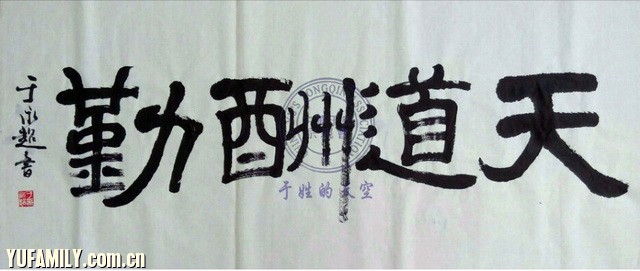 天道酬勤
于永超書
于姓的天空
YUFAMILY.com.cn